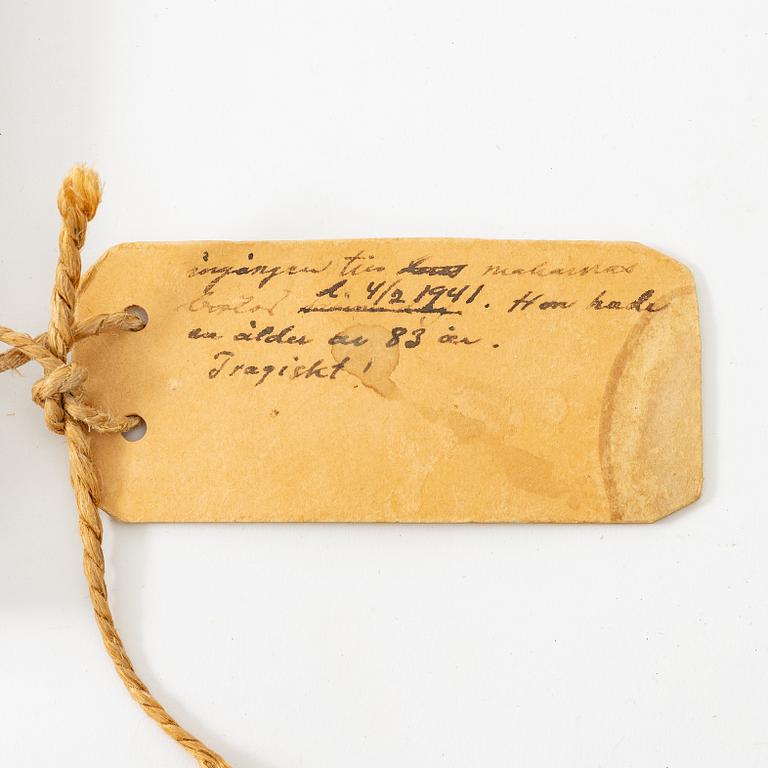 ingången till makarnas
bostad d. 4/2 1941. Hon hade
en ålder av 83 år.
Tragiskt!